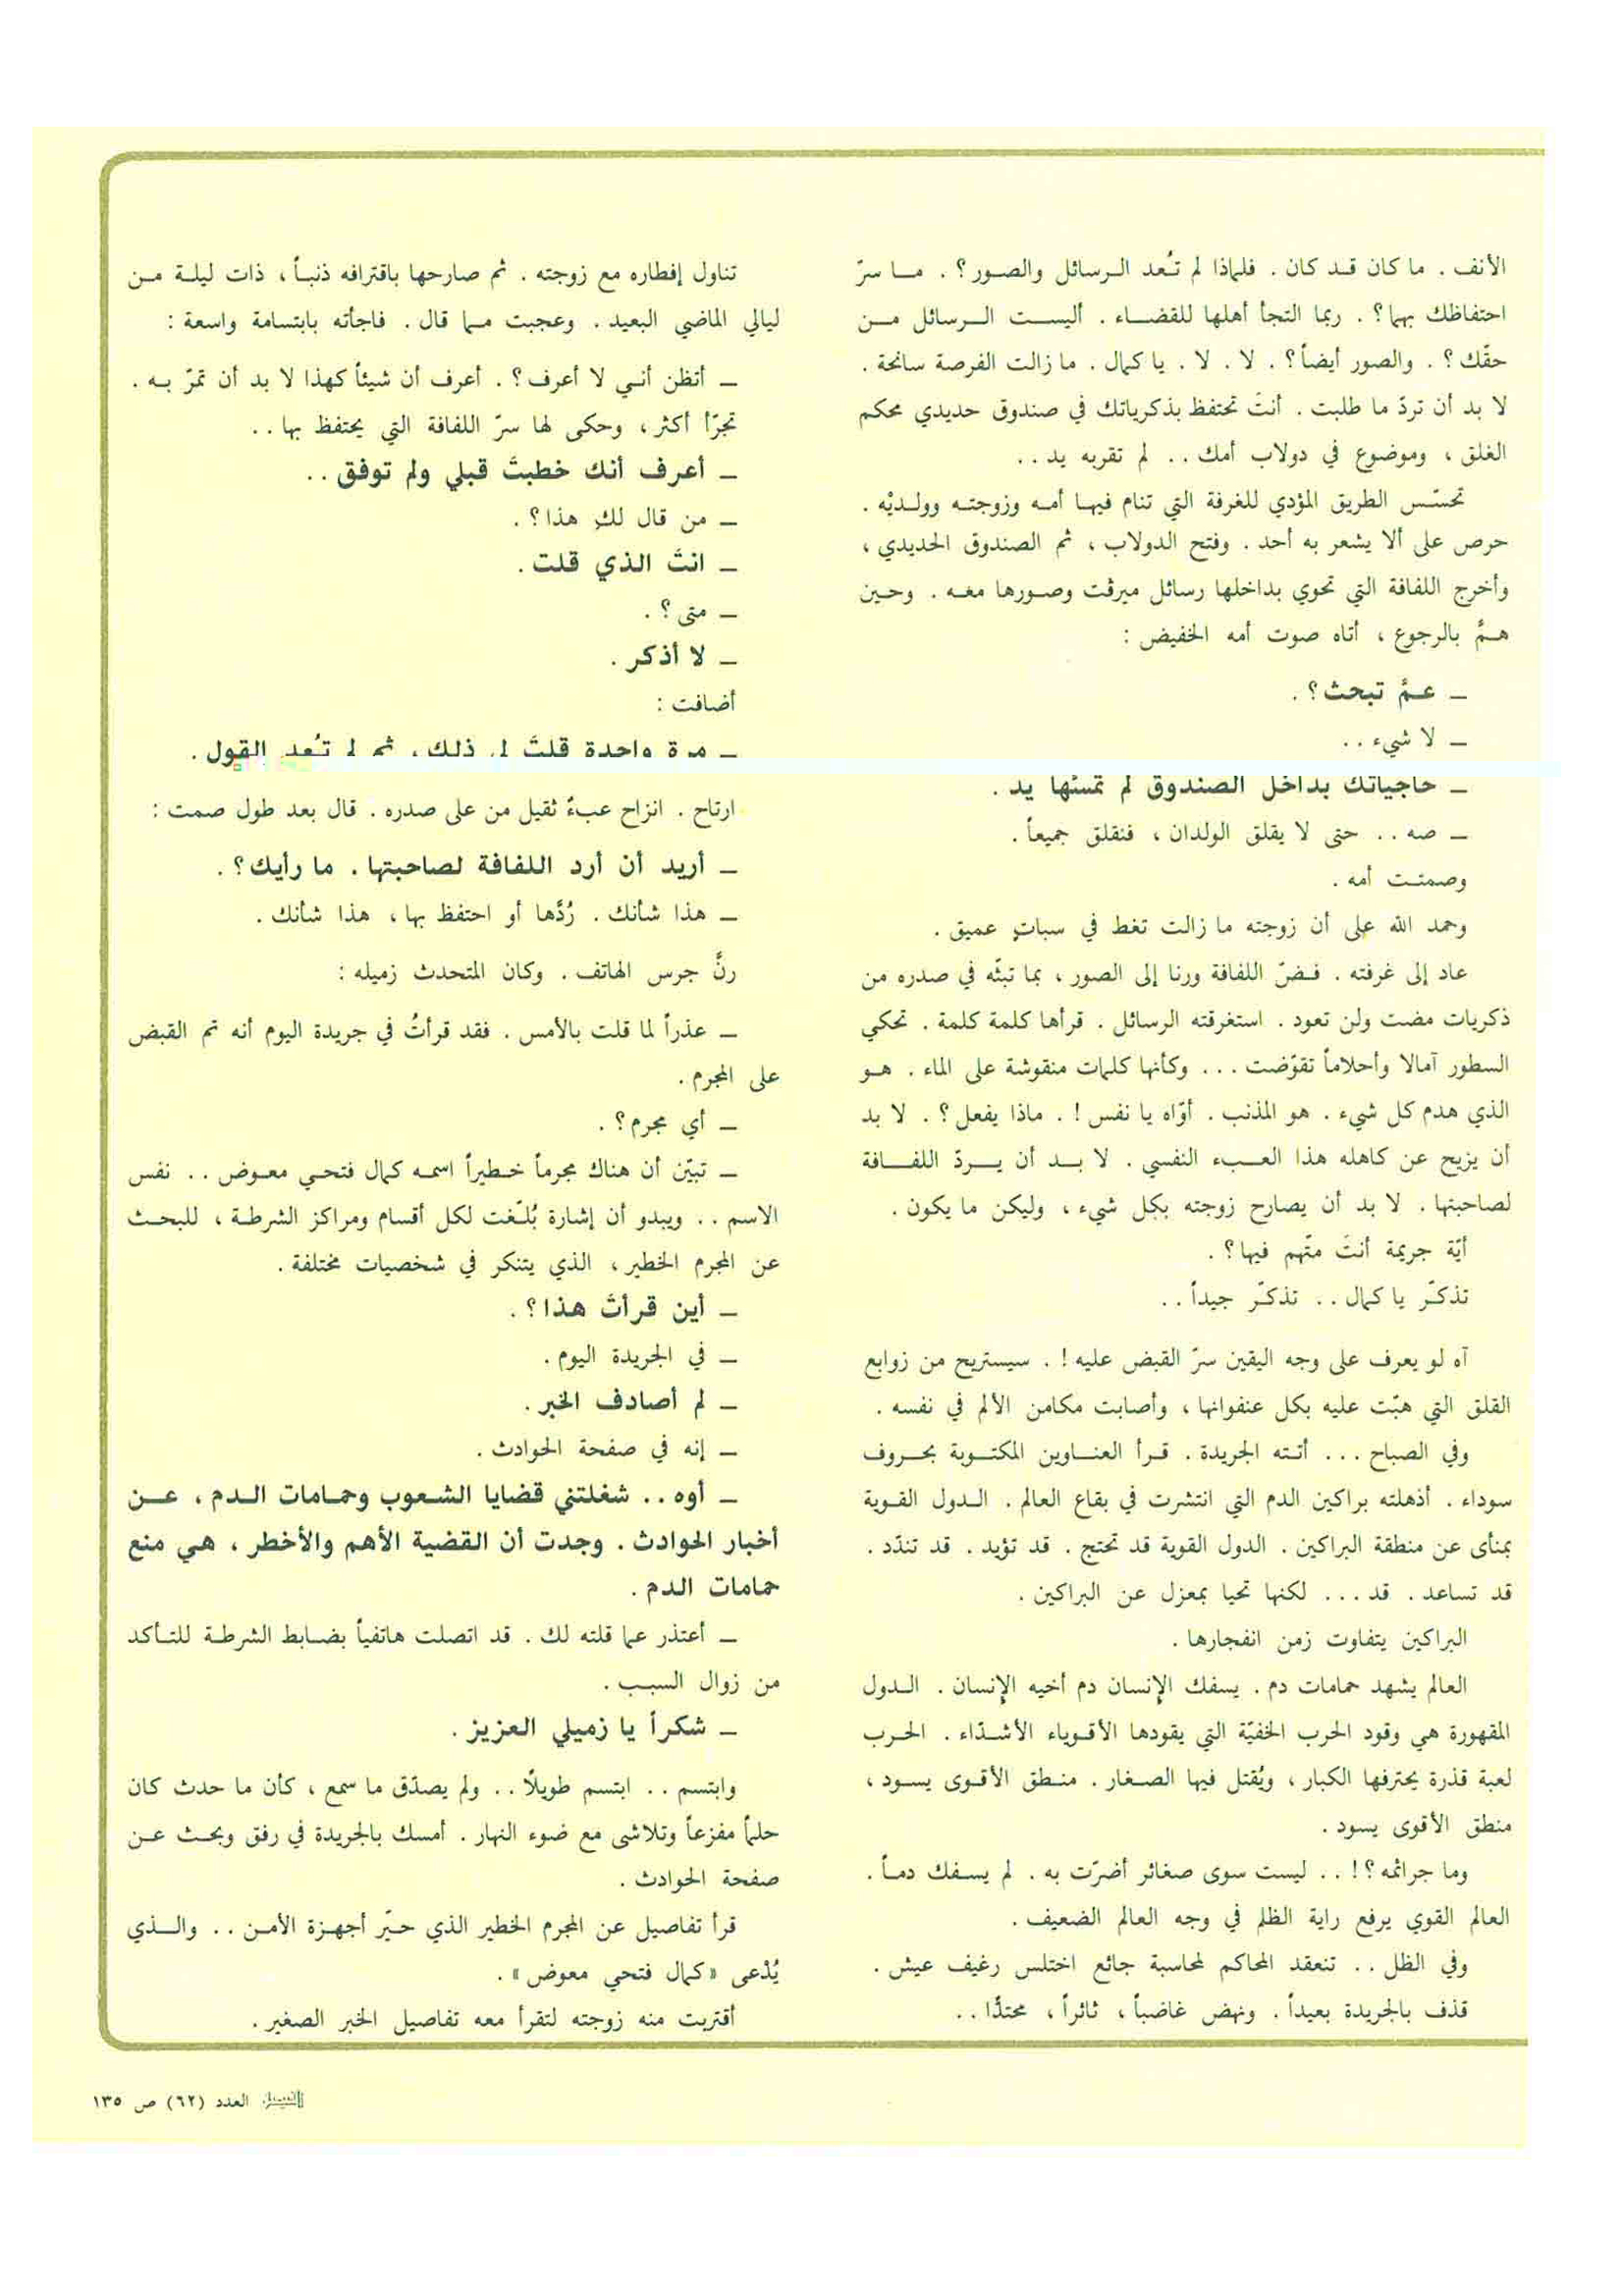 الأنف . ما كان قـد كان . فلماذا لم تـُعد الـرسائل والصـور ؟ . مـا سرّ
احتفاظك بهما ؟ . ربما التجأ أهلها للقضـاء . أليسـت الـرسائل مـن
حقّك ؟ . والصور أيضاً ؟ . لا . لا . يا كمال . ما زالت الفرصة سانحة .
لا بد أن تردّ ما طلبت . أنتَ تحتفظ بذكرياتك في صندوق حديدي محكم
الغلق ، وموضوع في دولاب أمك .. لم تقربه يد ..
تحسّس الطريق المؤدي للغرفة التي تنام فيهـا أمـه وزوجتـه وولـديْه .
حرص على ألا يشعر به أحد . وفتح الدولاب ، ثم الصندوق الحديدي ،
وأخرج اللفافة التي تحوي بداخلها رسائل ميرقت وصـورها معـه . وحـين
هـمَّ بالرجوع ، أتاه صوت أمه الخفيض :
ـ عـمَّ تبحث ؟ .
ـ لا شيء ..
ـ حاجياتك بداخل الصندوق لم تمسّها يد .
ـ صه .. حتى لا يقلق الولدان ، فنقلق جميعاً .
وصمتـت أمه .
وحمد الله على أن زوجته ما زالت تغط في سباتٍ عميق .
عاد إلى غرفته . فـضّ اللفافة ورنا إلى الصور ، بما تبثّه في صدره من
ذكريات مضت ولن تعود . استغرقته الرسائل . قرأها كلمة كلمة . تحكي
السطور آمالا وأحلاماً تقوّضت ... وكأنها كلمات منقوشة على الماء . هـو
الذي هدم كل شيء . هو المذنب . أوّاه يا نفس ! . ماذا يفعل ؟ . لا بد
أن يزيح عن كاهله هذا العـبء النفسي . لا بـد أن يـردّ اللفـافة
لصاحبتها . لا بد أن يصارح زوجته بكل شيء ، وليكن ما يكون .
أيّة جريمة أنتَ متّهم فيها ؟ .
تذكّر يا كمال .. تذكّر جيداً ..
آه لو يعرف على وجه اليقين سرّ القبض عليه ! . سيستريح من زوابع
القلق التي هبّت عليه بكل عنفوانها ، وأصابت مكامن الألم في نفسه .
وفي الصباح ... أتـته الجريدة . قـرأ العنـاوين المكتـوبة بحـروف
سوداء . أذهلته براكين الدم التي انتشرت في بقاع العالم . الـدول القـوية
بمنأى عن منطقة البراكين . الدول القوية قد تحتج . قد تؤيد . قد تندّد .
قد تساعد . قد ... لكنها تحيا بمعزل عن البراكين .
البراكين يتفاوت زمن انفجارها .
العالم يشهد حمامات دم . يسفك الإنسان دم أخيه الإنسان . الـدول
المقهورة هي وقود الحرب الخفيّة التي يقودها الأقـوياء الأشـدّاء . الحـرب
لعبة قذرة يحترفها الكبار ، ويُقتل فيها الصـغار . منـطق الأقـوى يسـود ،
منطق الأقوى يسود .
وما جرائمه ؟! .. ليست سوى صغائر أضرّت به . لم يسـفك دمـاً .
العالم القوي يرفع راية الظلم في وجه العالم الضعيف .
وفي الظل .. تنعقد المحاكم لمحاسبة جائع اختلس رغيف عيش .
قذف بالجريدة بعيداً . ونهض غاضباً ، ثائراً ، محتدًّا ..
تناول إفطاره مع زوجته . ثم صارحها باقترافه ذنبـاً ، ذات ليلـة مـن
ليالي الماضي البعيد . وعجبت ممـا قال . فاجأته بابتسامة واسعة :
ـ أتظن أنـي لا أعرف ؟ . أعرف أن شيئاً كهذا لا بد أن تمرّ بـه .
تجرّأ أكثر ، وحكى لها سرّ اللفافة التي يحتفظ بها ..
ـ أعرف أنك خطبتَ قبلي ولم توفق ..
ـ من قال لكِ هذا ؟ .
ـ انتَ الذي قلت .
ـ متى ؟ .
ـ لا أذكر .
أضافت :
ـ مرة واحدة قلتَ لي ذلك ، ثم لم تـُعد القول .
ارتاح . انزاح عبءٌ ثقيل من على صدره . قال بعد طول صمت :
ـ أريد أن أرد اللفافة لصاحبتها . ما رأيك ؟ .
ـ هذا شأنك . رُدَّها أو احتفظ بها ، هذا شأنك .
رنَّ جرس الهاتف . وكان المتحدث زميله :
ـ عذراً لما قلت بالأمس . فقد قرأتُ في جريدة اليوم أنه تم القبض
على المجرم .
ـ أي مجرم ؟ .
ـ تبيّن أن هناك مجرماً خـطيراً اسمـه كمال فتحـي معـوض .. نفس
الاسم .. ويبدو أن إشارة بُلـّغت لكل أقسام ومراكز الشرطـة ، للبحـث
عن المجرم الخطير ، الذي يتنكر في شخصيات مختلفة .
ـ أين قرأتَ هذا ؟ .
ـ في الجريدة اليوم .
ـ لم أصادف الخبر .
ـ إنه في صفحة الحوادث .
ـ أوه .. شغلتني قضايا الشـعوب وحمـامات الـدم ، عـن
أخبار الحوادث . وجدت أن القضية الأهم والأخطر ، هـي منع
حمامات الدم .
ـ أعتذر عما قلته لك . قد اتصلت هاتفياً بضـابط الشرطـة للتـأكد
من زوال السبب .
ـ شكراً يا زميلي العزيز .
وابتسم .. ابتسم طويلًا .. ولم يصدّق ما سمع ، كأن ما حدث كان
حلماً مفزعاً وتلاشى مع ضوء النهار . أمسك بالجريدة في رفق وبحـث عـن
صفحة الحوادث .
قرأ تفاصيل عن المجرم الخطير الذي حـيّر أجهـزة الأمـن .. والـذي
يُدْعى «كمال فتحي معوض» .
أقتربت منه زوجته لتقرأ معه تفاصيل الخبر الصغير .
الفيصل العدد (٦٢) ص ١٣٥